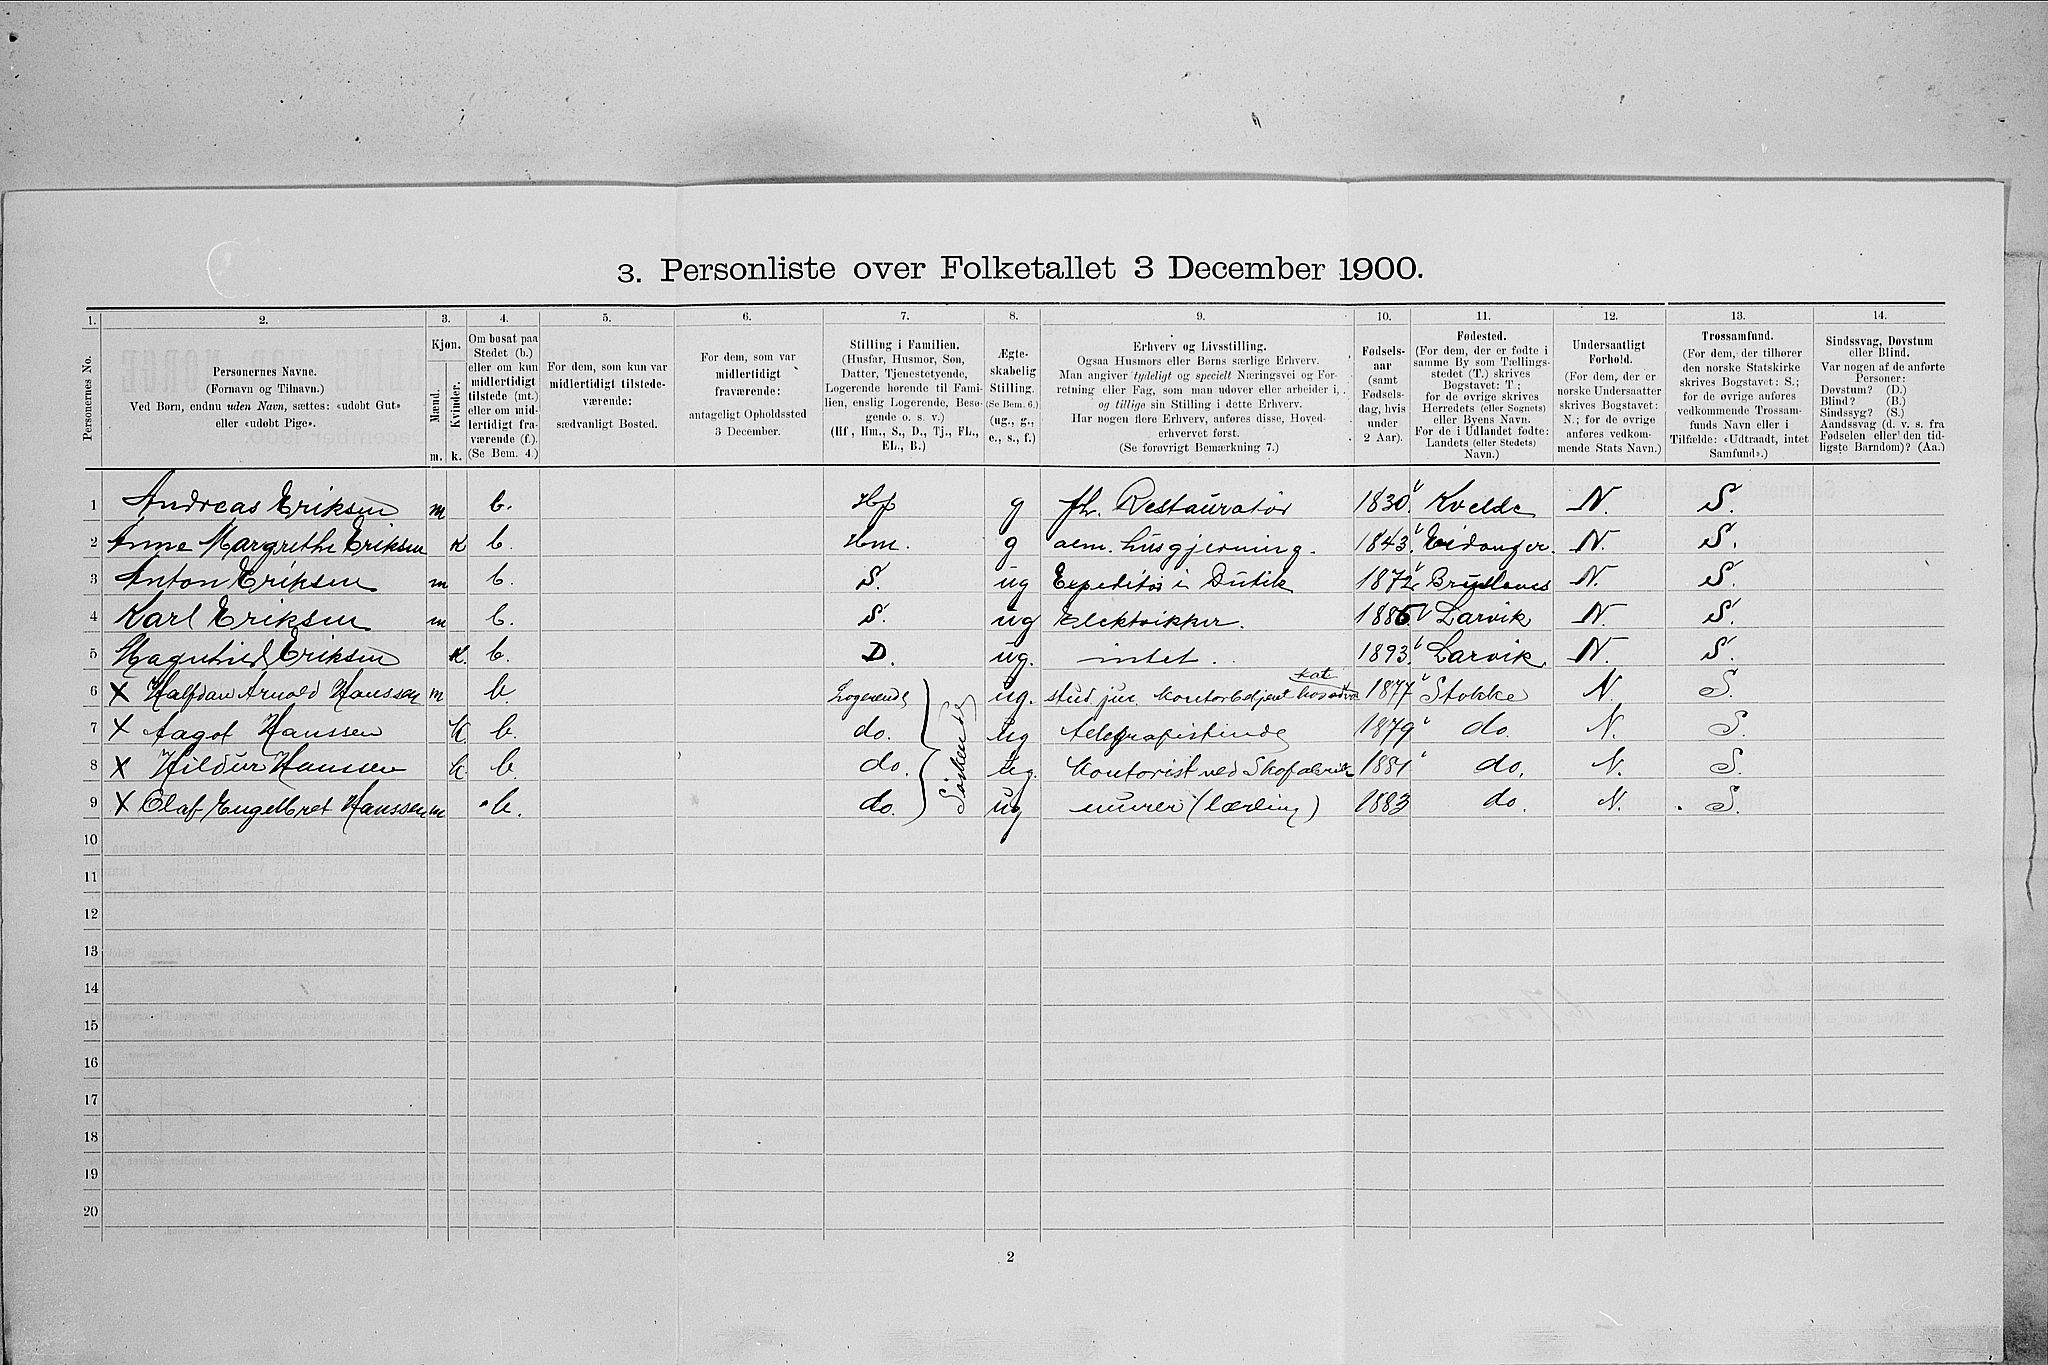 3. Personliste over Folketallet 3 December 1900.
1. 2. 3. 4. 5. 6. 7. 8. 9. 10. 11. 12. 13. 14.
Personernes No.
Personernes Navne.
(Fornavn og Tilnavn.)
Ved Børn, endnu uden Navn, sættes: «udøbt Gut»
eller «udøbt Pige».
Kjøn.
Mænd. Kvinder.
m. k.
Om bosat paa
Stedet (b.)
eller om kun
midlertidigt
tilstede (mt.)
eller om mid-
lertidigt fra-
værende (f.).
(Se Bem. 4.)
For dem, som kun var
midlertidigt tilstede-
værende:
sædvanligt Bosted.
For dem, som var
midlertidigt
fraværende:
antageligt Opholdssted
3 December.
Stilling i Familien.
(Husfar, Husmor, Søn,
Datter, Tjenestetyende,
Logerende hørende til Fami-
lien, enslig Logerende, Besø-
gende o. s. v.)
(Hf., Hm., S., D., Tj., FL.,
EL., B.)
Ægte-
skabelig
Stilling.
(Se Bem. 6.)
(ug., g.,
e., s., f.)
Erhverv og Livsstilling.
Ogsaa Husmors eller Børns særlige Erhverv.
Man angiver tydeligt og specielt Næringsvei og For-
retning eller Fag, som man udøver eller arbeider i,
og tillige sin Stilling i dette Erhverv.
Har nogen flere Erhverv, anføres disse, Hoved-
erhvervet først.
(Se forøvrigt Bemærkning 7.)
Fødsels-
aar
(samt
Fødsels-
dag, hvis
under
2 Aar).
Fødested.
(For dem, der er fødte i
samme By som Tællings-
stedet (T.) skrives
Bogstavet: T;
for de øvrige skrives
Herredets (eller Sognets)
eller Byens Navn.
For de i Udlandet fødte:
Landets (eller Stedets)
Navn.)
Undersaatligt
Forhold.
(For dem, der er
norske Undersaatter
skrives Bogstavet:
N.; for de øvrige
anføres vedkom-
mende Stats Navn.)
Trossamfund.
(For dem, der tilhører
den norske Statskirke
skrives Bogstavet: S.;
for de øvrige anføres
vedkommende Trossam-
funds Navn eller i
Tilfælde: «Udtraadt, intet
Samfund».)
Sindssvag, Døvstum
eller Blind.
Var nogen af de anførte
Personer:
Døvstum? (D.)
Blind? (B.)
Sindssyg? (S.)
Aandssvag (d. v. s. fra
Fødselen eller den tid-
ligste Barndom)? (Aa.)
1 Andreas Eriksen m b. Hf g fh. Restauratør 1830 Kvelde N. S.
2 Anne Margrethe Eriksen K b. Hm. g alm. husgjerning. 1843 Eidanger. N. S.
3 Anton Eriksen m b. S. ug Expeditør i Butik 1872 Brunlanes N. S.
4 Karl Eriksen m b. S. ug Elektriker. 1886 Larvik N. S.
5 Ragnhild Eriksen K. b. D. ug. intet. 1893 Larvik N. S.
6 X Halfdan Arnold Hanssen m b. Logerende ug. stud. jur. Kontorbetjent hos 1877 Stokke N. S.
7 X Aagot Hanssen K b. do. ug Telegrafistinde 1879 do. N. S.
8 X Hildur Hanssen K. b. do. ug. Kontorist ved Skofabrik 1881 do. N. S.
9 X Olaf Engelbret Hanssen m b. do. ug murer (lærling) 1883 do. N. S.
Søskende
10
11
12
13
14
15
16
17
18
19
20
2